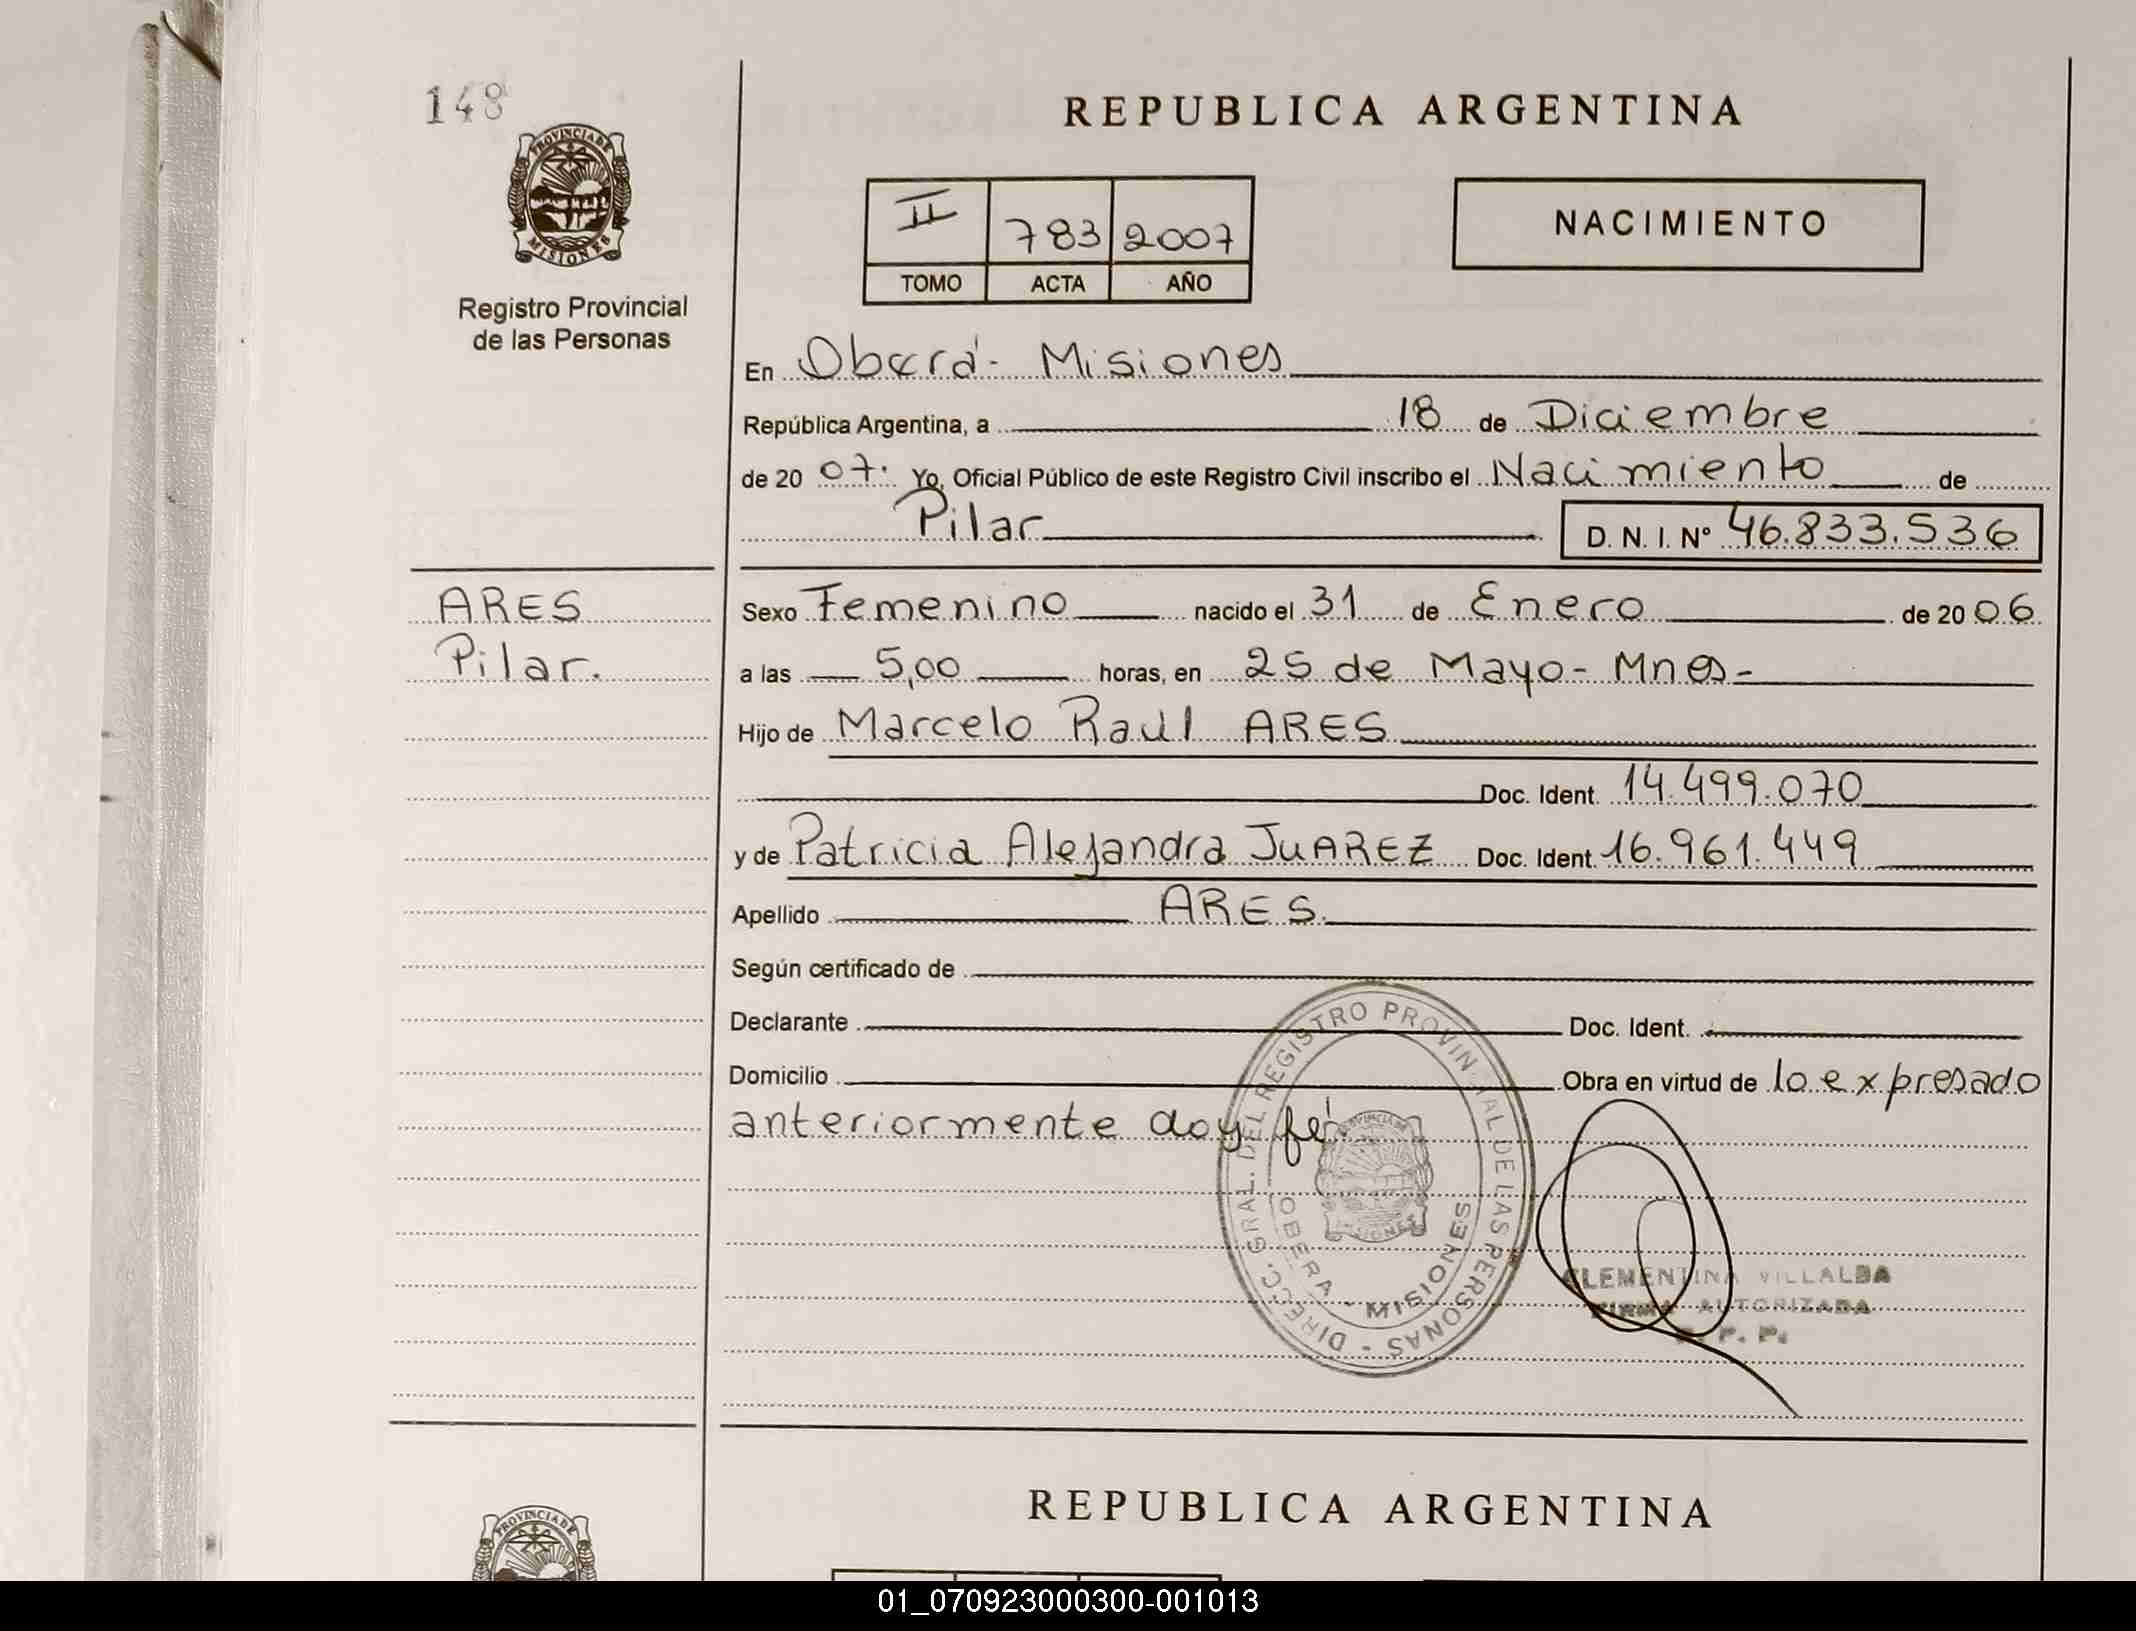 148
PROVINCIA DE
MISIONES
Registro Provincial
de las Personas
REPUBLICA ARGENTINA
II 783 2007
TOMO ACTA AÑO
NACIMIENTO
En Oberá - Misiones
República Argentina, a 18 de Diciembre
de 20 07. Yo, Oficial Público de este Registro Civil inscribo el Nacimiento de
Pilar D. N. I. Nº 46.833.536
ARES
Pilar.
Sexo Femenino nacido el 31 de Enero de 20 06
a las 5,00 horas, en 25 de Mayo - Mnes -
Hijo de Marcelo Raúl ARES
Doc. Ident. 14.499.070
y de Patricia Alejandra JUAREZ Doc. Ident. 16.961.449
Apellido ARES.
Según certificado de
Declarante Doc. Ident.
Domicilio Obra en virtud de lo expresado
anteriormente doy fé.
DIRECC. GRAL. DEL REGISTRO PROVINCIAL DE LAS PERSONAS -
OBERA - MISIONES
CLEMENTINA VILLALBA
FIRMA AUTORIZADA
R. P. P.
REPUBLICA ARGENTINA
PROVINCIA DE
01_070923000300-001013